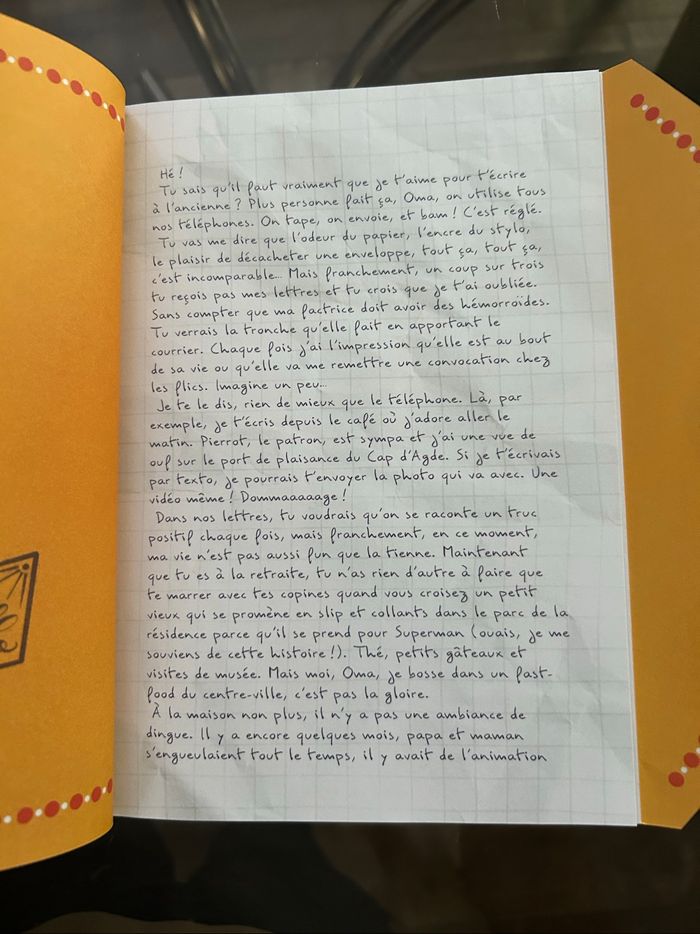 Hé !
Tu sais qu'il faut vraiment que je t'aime pour t'écrire
à l'ancienne ? Plus personne fait ça, Oma, on utilise tous
nos téléphones. On tape, on envoie, et bam ! C'est réglé.
Tu vas me dire que l'odeur du papier, l'encre du stylo,
le plaisir de décacheter une enveloppe, tout ça, tout ça,
c'est incomparable... Mais franchement, un coup sur trois
tu reçois pas mes lettres et tu crois que je t'ai oubliée.
Sans compter que ma factrice doit avoir des hémorroïdes.
Tu verrais la tronche qu'elle fait en apportant le
courrier. Chaque fois j'ai l'impression qu'elle est au bout
de sa vie ou qu'elle va me remettre une convocation chez
les flics. Imagine un peu...
Je te le dis, rien de mieux que le téléphone. Là, par
exemple, je t'écris depuis le café où j'adore aller le
matin. Pierrot, le patron, est sympa et j'ai une vue de
ouf sur le port de plaisance du Cap d'Agde. Si je t'écrivais
par texto, je pourrais t'envoyer la photo qui va avec. Une
vidéo même ! Dommaaaaage !
Dans nos lettres, tu voudrais qu'on se raconte un truc
positif chaque fois, mais franchement, en ce moment,
ma vie n'est pas aussi fun que la tienne. Maintenant
que tu es à la retraite, tu n'as rien d'autre à faire que
te marrer avec tes copines quand vous croisez un petit
vieux qui se promène en slip et collants dans le parc de la
résidence parce qu'il se prend pour Superman (ouais, je me
souviens de cette histoire !). Thé, petits gâteaux et
visites de musée. Mais moi, Oma, je bosse dans un fast-
food du centre-ville, c'est pas la gloire.
À la maison non plus, il n'y a pas une ambiance de
dingue. Il y a encore quelques mois, papa et maman
s'engueulaient tout le temps, il y avait de l'animation